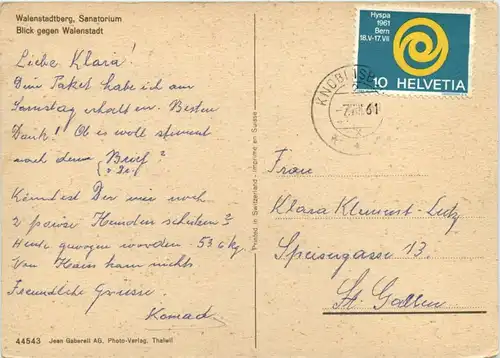 Walenstadtberg, Sanatorium
Blick gegen Walenstadt
Liebe Klara!
Dein Paket habe ich am
Samstag erhalten. Besten
Dank! Ob es wohl stimmt
nach dem Brief?
Könntest Du mir noch
2 Hemden schicken?
Heute gewogen worden - 53 kg.
Von Hans kam nichts
Freundliche Grüsse
Konrad
44543 Jean Gaberell AG. Photo-Verlag. Thalwil
Printed in Switzerland - Imprimé en Suisse
Hyspa
1961
Bern
18.V-17.VII
10 HELVETIA
61
Frau
Klara Klement-Lutz
Speisergasse 13.
St. Gallen